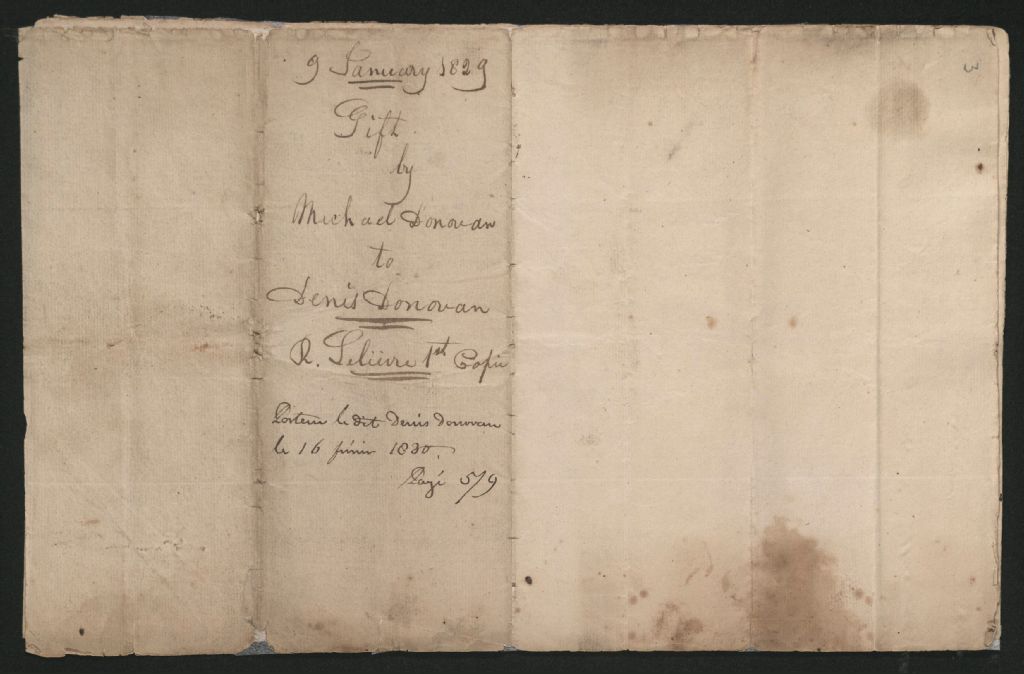 9 January 1829
Gift
by
Michael Donovan
to
Denis Donovan
R. Lelièvre 1st Copie
Porteur le dit Denis Donovan
le 16 1830.
Payé 5/9
3